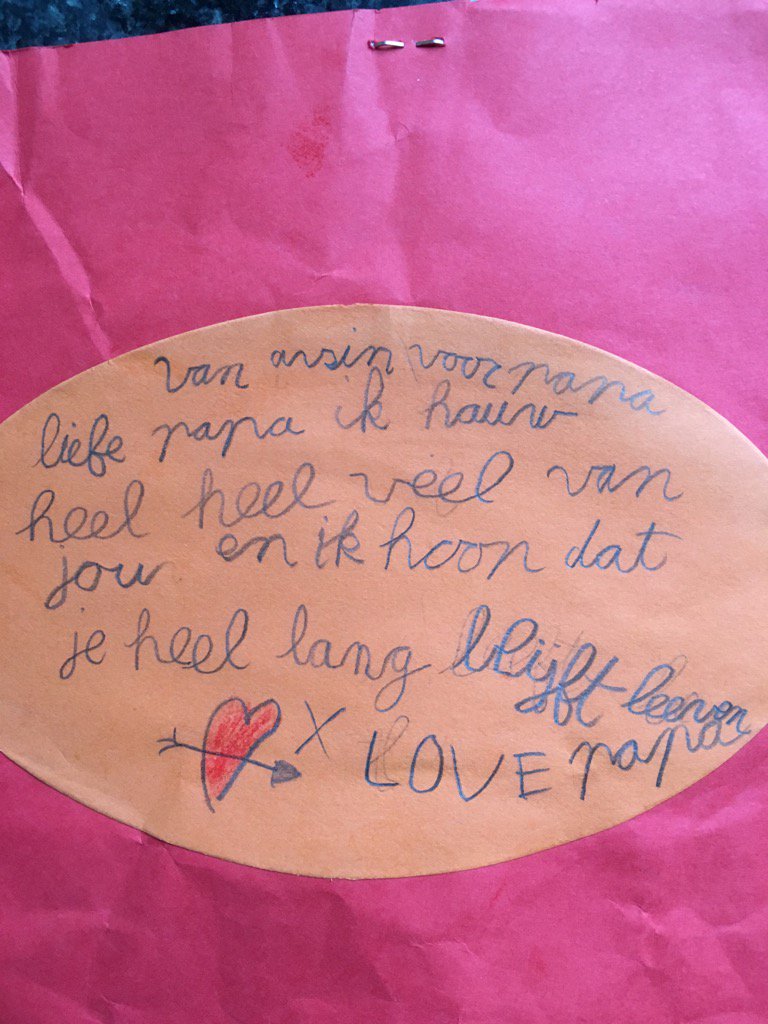 van arsin voor papa
liefe papa ik hauw
heel heel veel van
jou en ik hoop dat
je heel lang blijft leeven
X LOVE papa